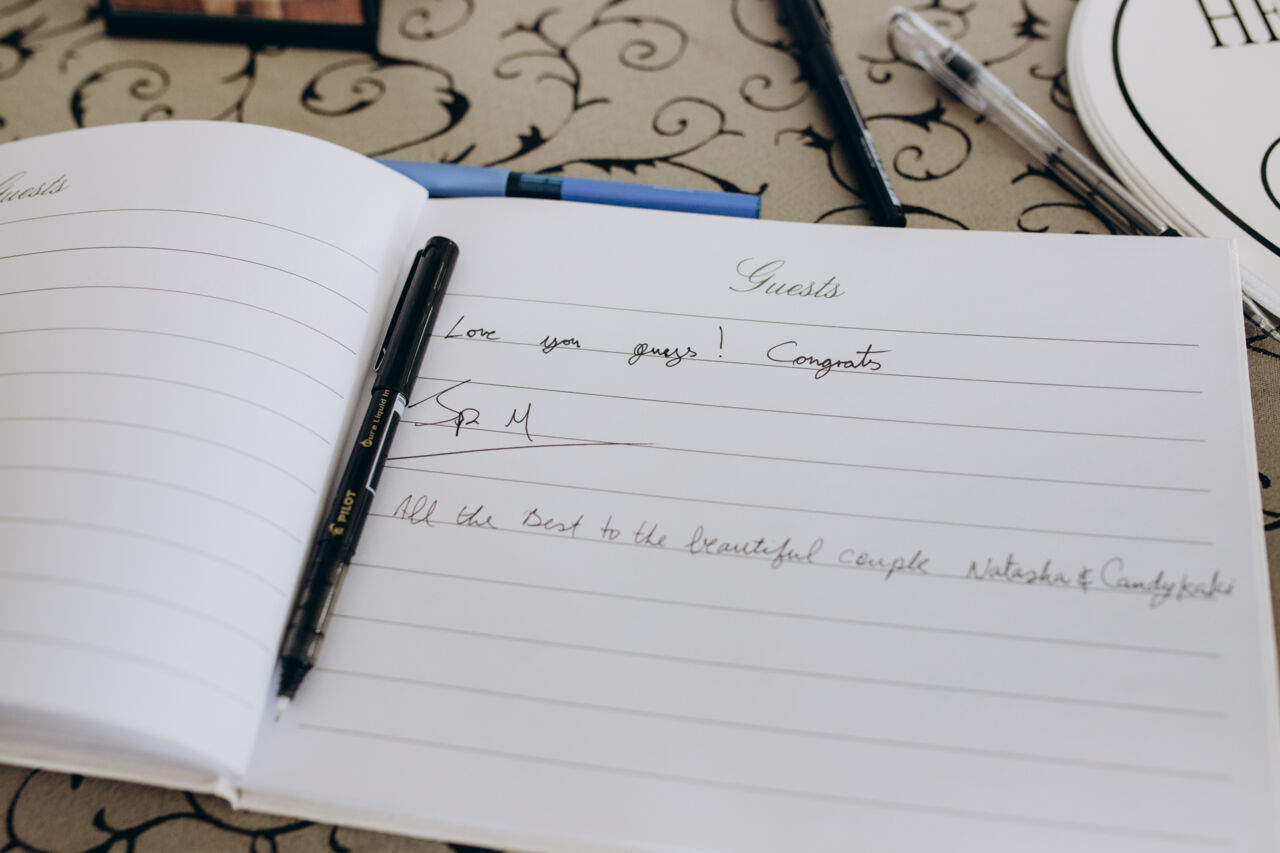 Guests
Guests
Love you guys! Congrats
All the Best to the beautiful couple Natasha & Candykaki
Pure Liquid In
PILOT
HE